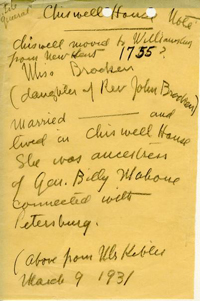 Chiswell House Note
Chiswell moved to Williamsburg
from New Kent 1755?
Miss Brocken
(daughter of Rev John Brocken)
Married and
lived in Chiswell House
She was ancestress
of Gen. Billy Mahone
connected with
Petersburg.
(Above from Mr Kibler
March 9 1931